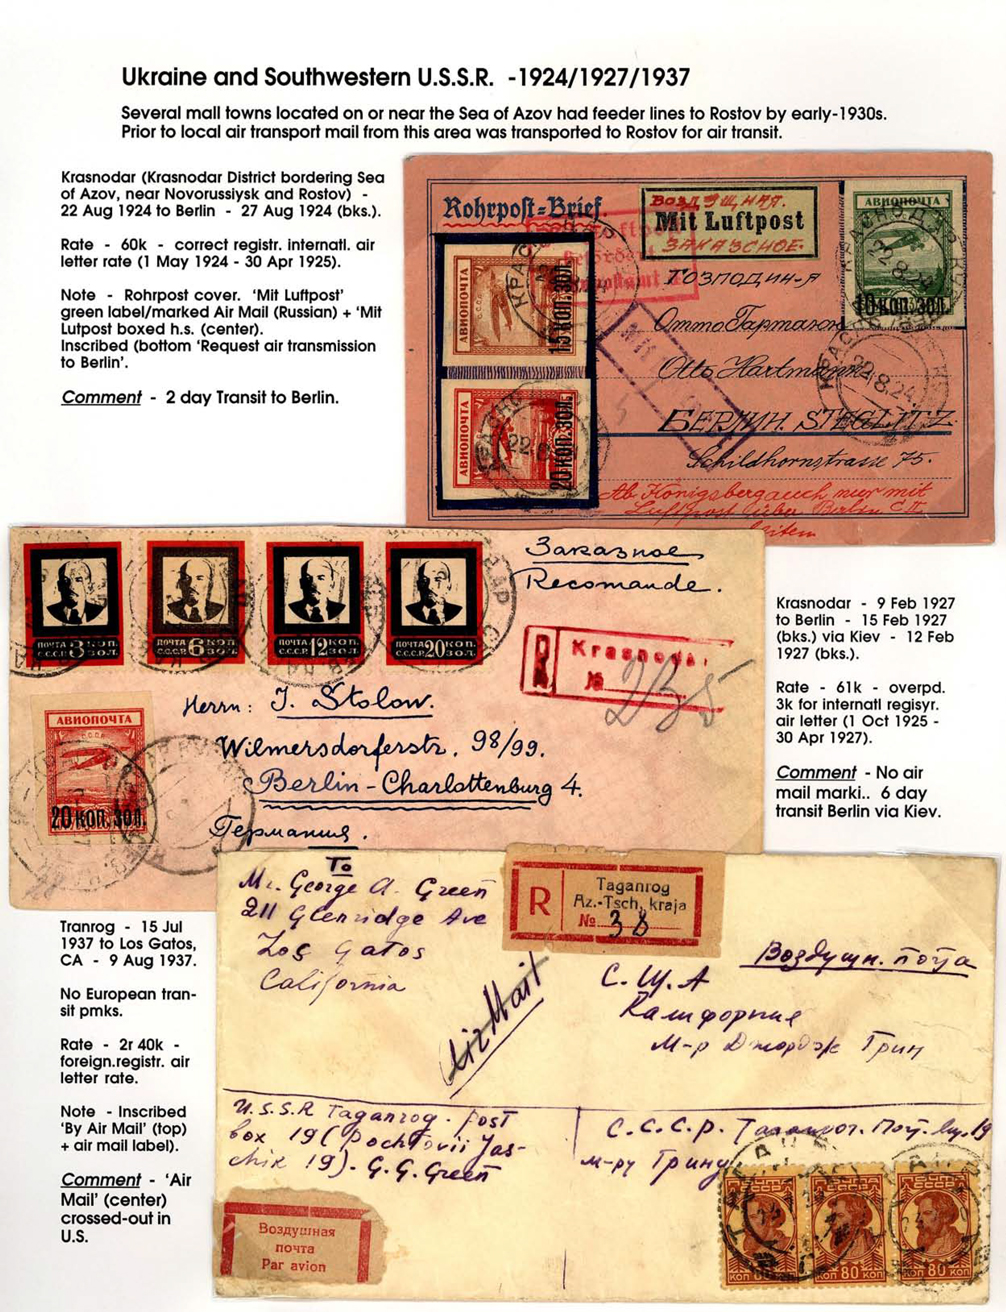 Ukraine and Southwestern U.S.S.R. -1924/1927/1937
Several mall towns located on or near the Sea of Azov had feeder lines to Rostov by early-1930s.
Prior to local air transport mail from this area was transported to Rostov for air transit.
Krasnodar (Krasnodar District bordering Sea
of Azov, near Novorussiysk and Rostov) -
22 Aug 1924 to Berlin - 27 Aug 1924 (bks.).
Rate - 60k - correct registr. internatl. air
letter rate (1 May 1924 - 30 Apr 1925).
Note - Rohrpost cover. 'Mit Luftpost'
green label/marked Air Mail (Russian) + 'Mit
Lutpost boxed h.s. (center).
Inscribed (bottom 'Request air transmission
to Berlin'.
Comment - 2 day Transit to Berlin.
Rohrpost=Brief.
ВОЗДУШНАЯ.
Mit Luftpost
ЗАКАЗНОЕ.
АВИОПОЧТА
10 КОП. ЗОЛ.
АВИОПОЧТА
15 КОП. ЗОЛ.
АВИОПОЧТА
20 КОП. ЗОЛ.
22.8.24
Господин-я
Отто Гартманн
Otto Hartmann
БЕРЛИН. STEGLITZ
Schildhornstrasse 75.
Ab Königsberg auch nur mit
Luftpost über Berlin C.II
leiten
ПОЧТА 3 КОП.
С.С.С.Р. ЗОЛ.
ПОЧТА 6 КОП.
С.С.С.Р. ЗОЛ.
ПОЧТА 12 КОП.
С.С.С.Р. ЗОЛ.
ПОЧТА 20 КОП.
С.С.С.Р. ЗОЛ.
Заказное
Recomande.
R
Krasnodar
№ 235
АВИОПОЧТА
20 КОП. ЗОЛ.
Herrn: J. Stolow.
Wilmersdorferstr. 98/99.
Berlin-Charlottenburg 4.
Германия.
Krasnodar - 9 Feb 1927
to Berlin - 15 Feb 1927
(bks.) via Kiev - 12 Feb
1927 (bks.).
Rate - 61k - overpd.
3k for internatl regisyr.
air letter (1 Oct 1925 -
30 Apr 1927).
Comment - No air
mail marki.. 6 day
transit Berlin via Kiev.
Tranrog - 15 Jul
1937 to Los Gatos,
CA - 9 Aug 1937.
No European tran-
sit pmks.
Rate - 2r 40k -
foreign.registr. air
letter rate.
Note - Inscribed
'By Air Mail' (top)
+ air mail label).
Comment - 'Air
Mail' (center)
crossed-out in
U.S.
To
Mr. George A. Green
211 Glenridge Ave
Los Gatos
California
R
Taganrog
Az.-Tsch. kraja
№ 38
Воздушн. почта
С.Ш.А
Калифорния
М-р Джордж Грин
Air Mail
U.S.S.R Taganrog. post
box 19 (Pochtovii Jas-
chik 19). G.G. Green
С.С.С.Р. Таганрог. Почт. ящ. 19
м-ру Грину
Воздушная
почта
Par avion
КОП 80
КОП 80 К
КОП 80 К